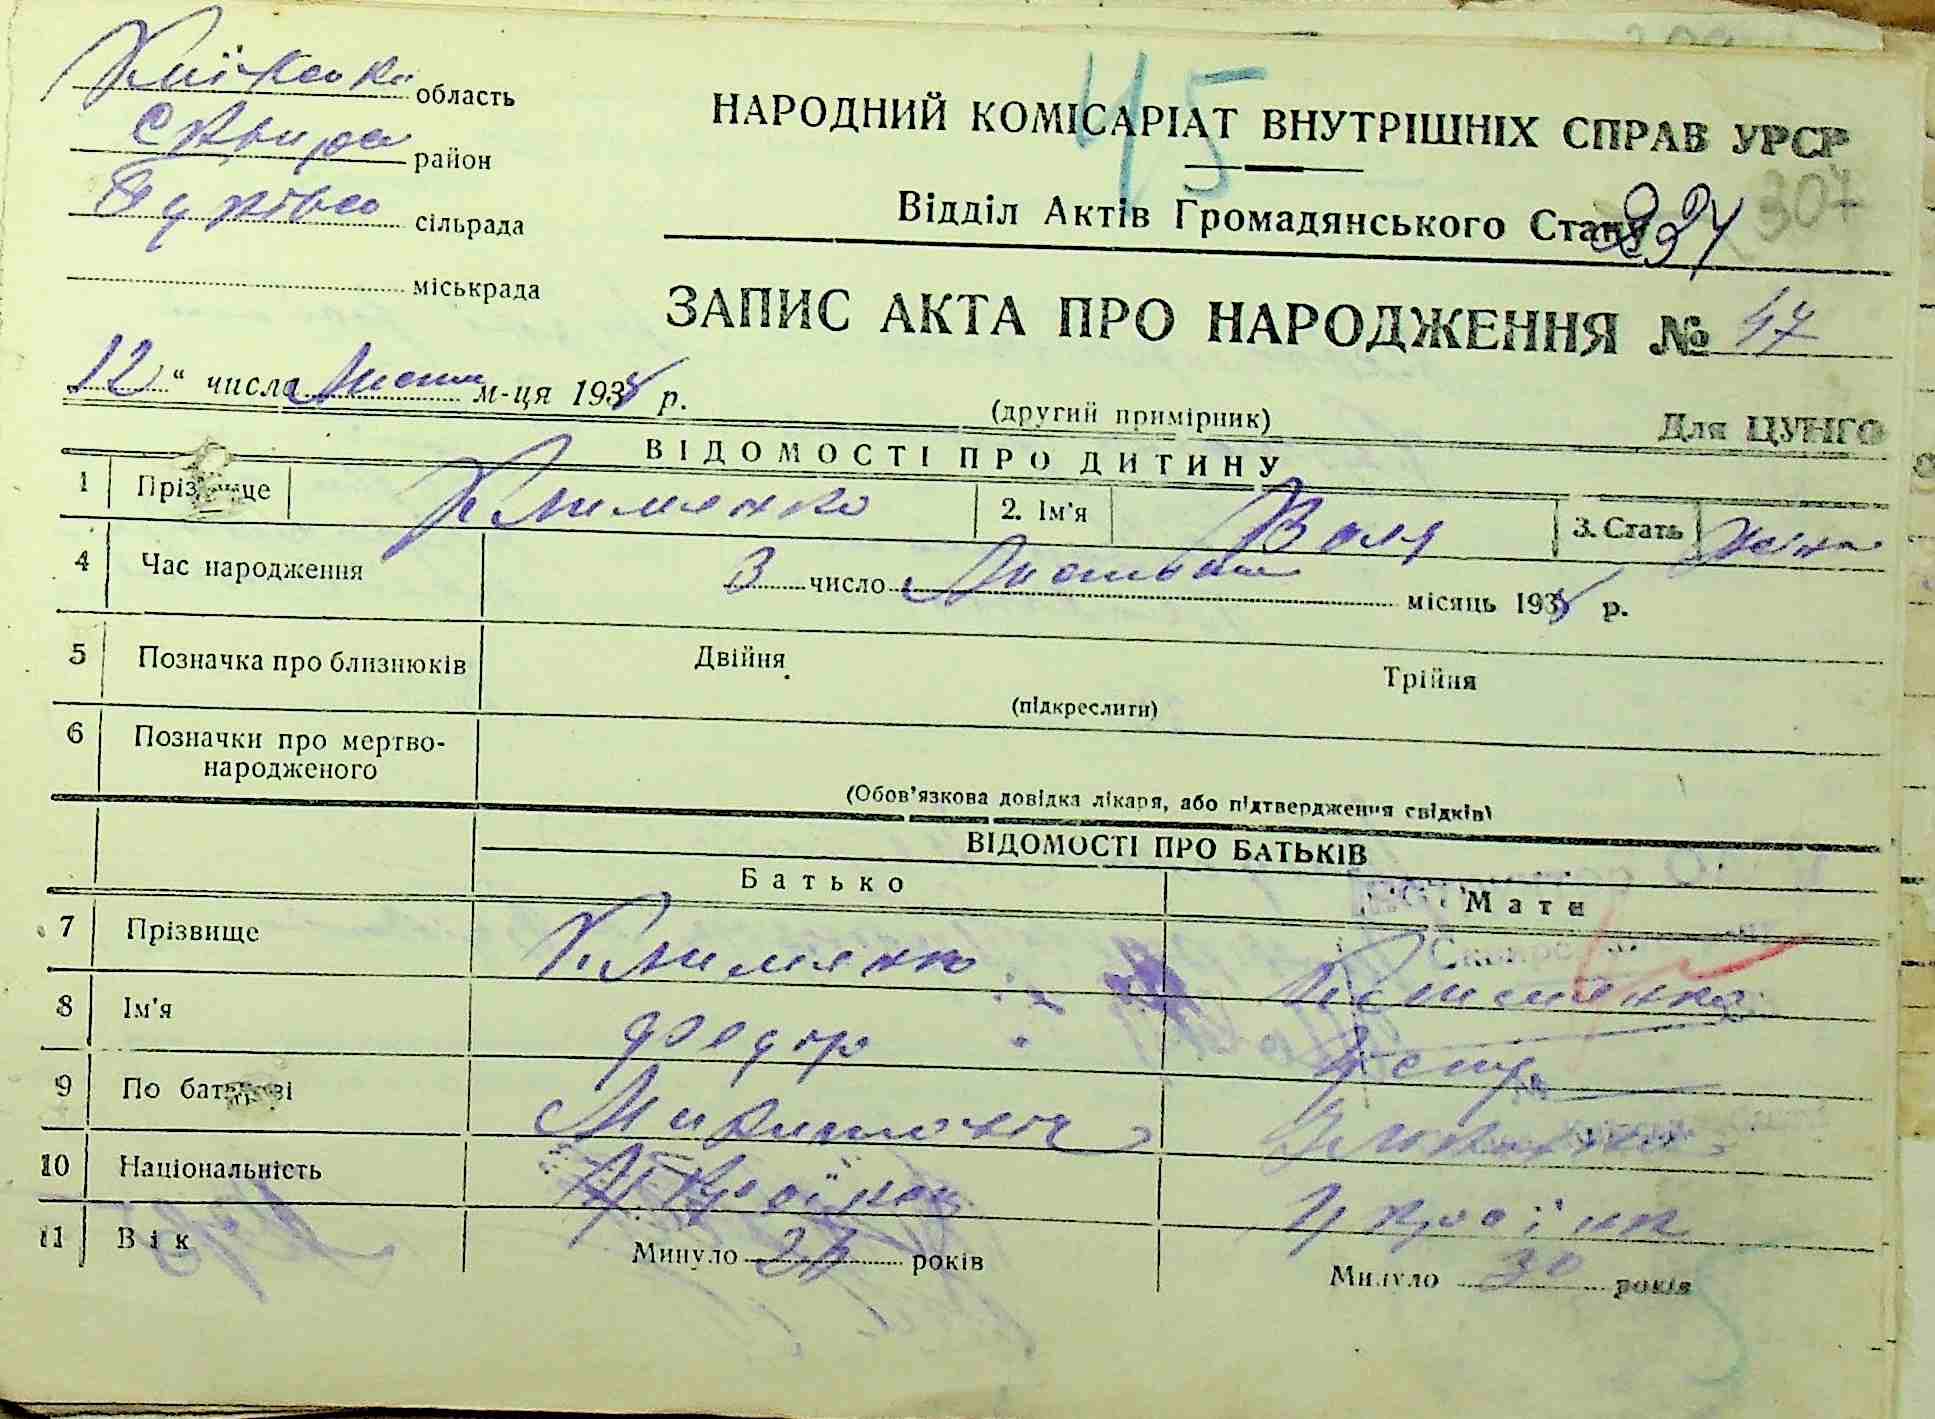 Київська область
Сквира район
Буківка сільрада
міськрада
45
НАРОДНИЙ КОМІСАРІАТ ВНУТРІШНІХ СПРАВ УРСР
307
Відділ Актів Громадянського Стану
ЗАПИС АКТА ПРО НАРОДЖЕННЯ № 47
12 " числа Листоп м-ця 1938 р.
(другий примірник)
Для ЦУНГО
ВІДОМОСТІ ПРО ДИТИНУ
1 Прізвище Клименко 2. Ім'я Воля 3. Стать жіно
4 Час народження 3 число Листопад місяць 1938 р.
5 Позначка про близнюків Двійня Трійня
(підкреслити)
6 Позначки про мертво-
народженого
(Обов'язкова довідка лікаря, або підтвердження свідків)
ВІДОМОСТІ ПРО БАТЬКІВ
Батько Мати
7 Прізвище Клименко Клименко
8 Ім'я Федор
9 По батькові Микитович
10 Національність Українец Українк
11 Вік Минуло років Минуло 30 років